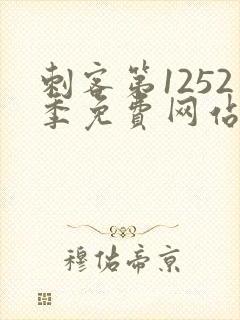 刺客第1252
季免費网佔
穆佑帝京